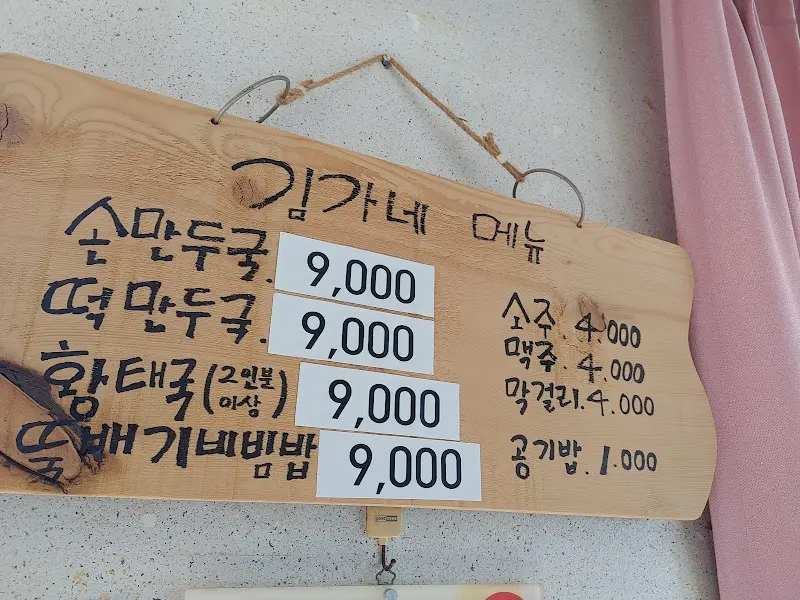 김가네 메뉴
손만두국. 9,000
떡만두국. 9,000
황태국(2인분 이상) 9,000
뚝배기비빔밥 9,000
소주. 4.000
맥주. 4.000
막걸리. 4.000
공기밥. 1.000